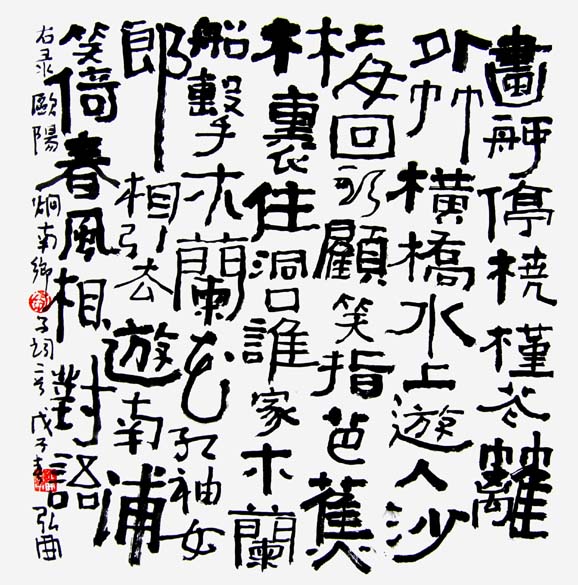 畫舸停橈槿花籬
外竹橫橋水上遊人沙
上女回頭顧笑指芭蕉
林裏住洞口誰家木蘭
船繫木蘭花紅袖女
郎相引去遊南浦
笑倚春風相對語
右录歐陽炯南鄉子詞一首戊子春弘